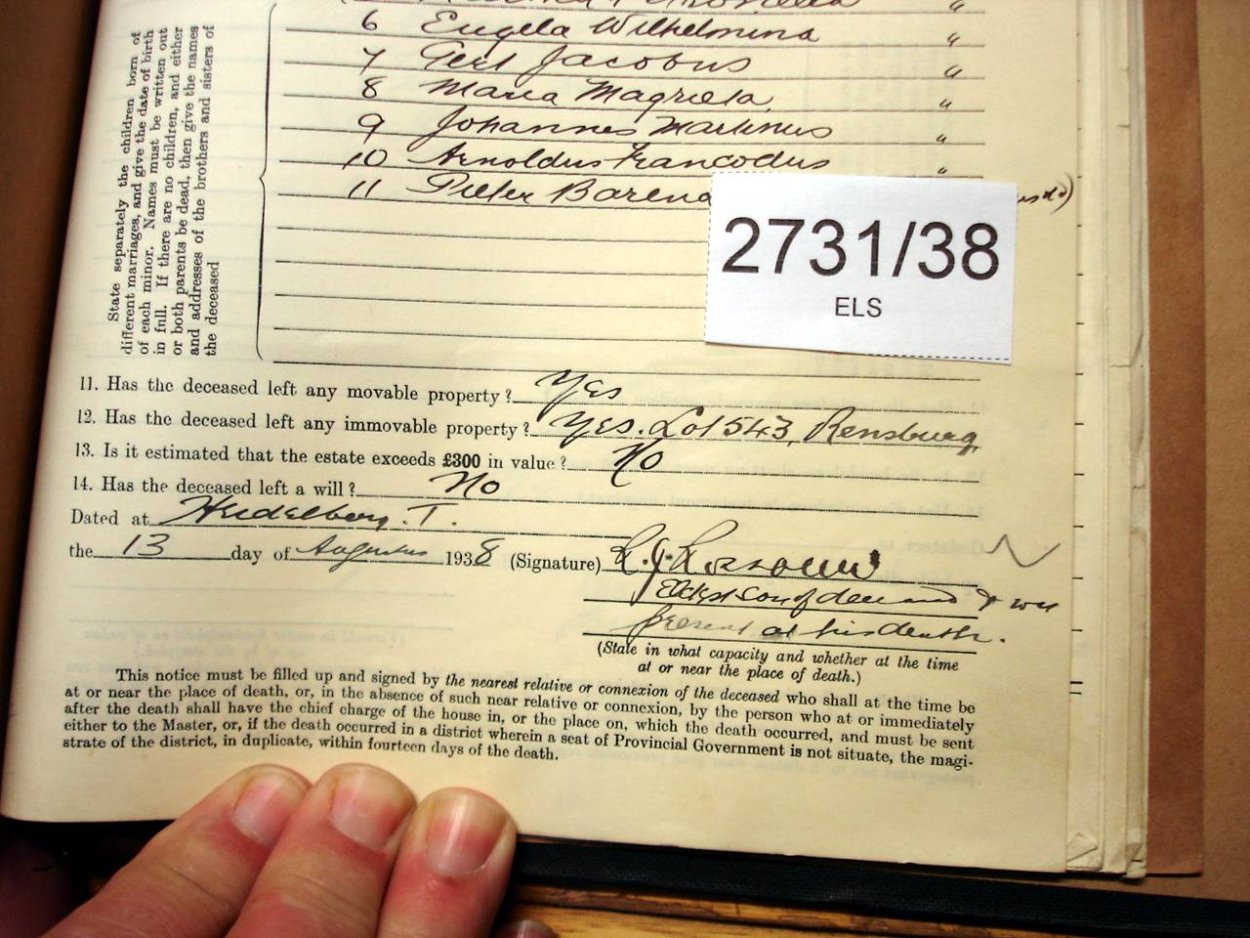 6 Engela Wilhelmina "
7 Gert Jacobus "
8 Maria Magrieta "
9 Johannes Martinus "
10 Arnoldus Francodus "
11 Pieter Barend
2731/38
ELS
State separately the children born of
different marriages, and give the date of birth
of each minor. Names must be written out
in full. If there are no children, and either
or both parents be dead, then give the names
and addresses of the brothers and sisters of
the deceased
11. Has the deceased left any movable property? Yes
12. Has the deceased left any immovable property? Yes. Lot 543, Rensburg
13. Is it estimated that the estate exceeds £300 in value? No
14. Has the deceased left a will? No
Dated at Heidelberg. T.
the 13 day of Augustus 1938 (Signature)
Eldest son of deceased & was
present at his death.
(State in what capacity and whether at the time
at or near the place of death.)
This notice must be filled up and signed by the nearest relative or connexion of the deceased who shall at the time be
at or near the place of death, or, in the absence of such near relative or connexion, by the person who at or immediately
after the death shall have the chief charge of the house in, or the place on, which the death occurred, and must be sent
either to the Master, or, if the death occurred in a district wherein a seat of Provincial Government is not situate, the magi-
strate of the district, in duplicate, within fourteen days of the death.